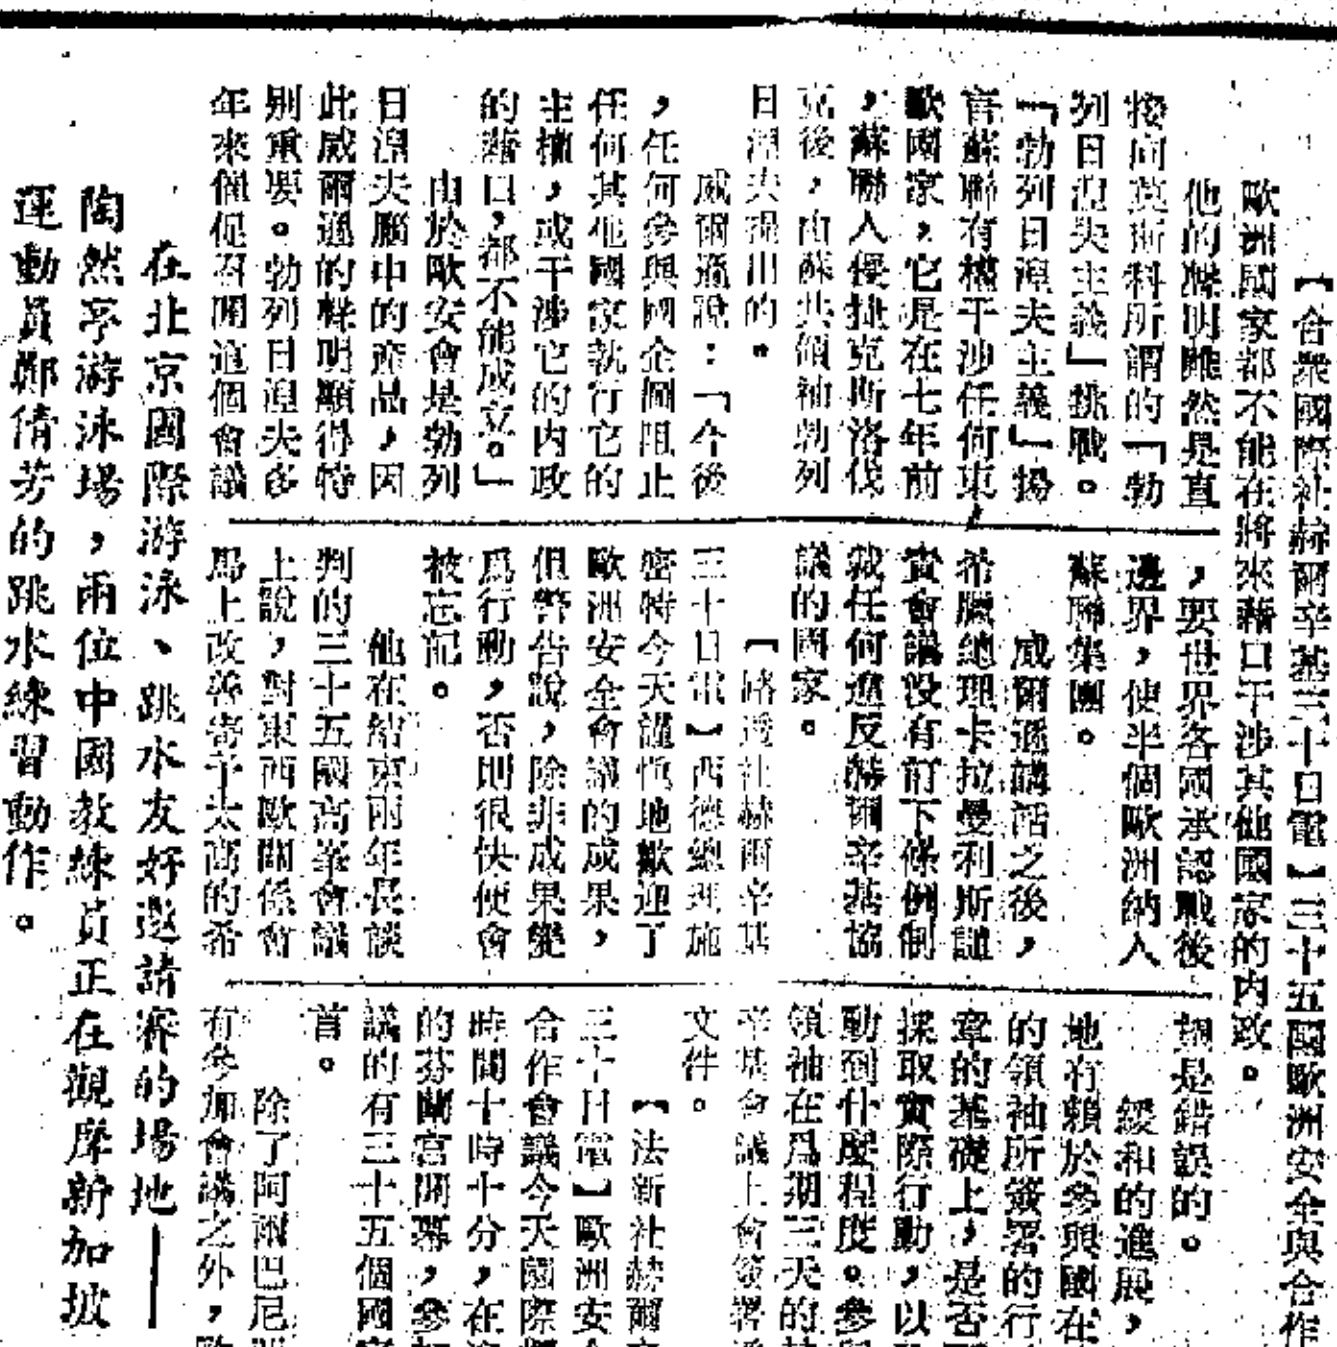 【合衆國際社赫爾辛基三十日電】三十五國歐洲安全與合作
歐洲國家都不能在將來藉口干涉其他國家的内政。
他的聲明雖然是直
接向莫斯科所謂的「勃
列日湼夫主義」挑戰。
「勃列日湼夫主義」揚
言蘇聯有權干涉任何東
歐國家，它是在七年前
，蘇聯入侵捷克斯洛伐
克後，由蘇共領袖勃列
日湼夫提出的。
威爾遜說：「今後
，任何參與國企圖阻止
任何其他國家執行它的
主權，或干涉它的内政
的藉口，都不能成立。」
由於歐安會是勃列
日湼夫腦中的產品，因
此威爾遜的聲明顯得特
别重要。勃列日湼夫多
年來催促召開這個會議
，要世界各國承認戰後
邊界，使半個歐洲納入
蘇聯集團。
威爾遜講話之後，
希臘總理卡拉曼利斯譴
責會議没有訂下條例制
裁任何違反赫爾辛基協
議的國家。
【路透社赫爾辛基
三十日電】西德總理施
密特今天謹慎地歡迎了
歐洲安全會議的成果，
但警告說，除非成果變
爲行動，否則很快便會
被忘記。
他在結束兩年長談
判的三十五國高峯會議
上說，對東西歐關係會
馬上改善寄予太高的希
望是錯誤的。
緩和的進展，
地有賴於參與國在
的領袖所簽署的行
章的基礎上，是否
採取實際行動，以
動到什麽程度。參與
領袖在爲期三天的赫
辛基會議上會簽署
文件。
【法新社赫爾
三十日電】歐洲安全
合作會議今天國際標
時間十時十分，在
的芬蘭宫開幕，參加
議的有三十五個國家
首。
除了阿爾巴尼
有參加會議之外，歐
在北京國際游泳、跳水友好邀請賽的場地——
陶然亭游泳場，兩位中國教練員正在觀摩新加坡
運動員鄭倩芳的跳水練習動作。